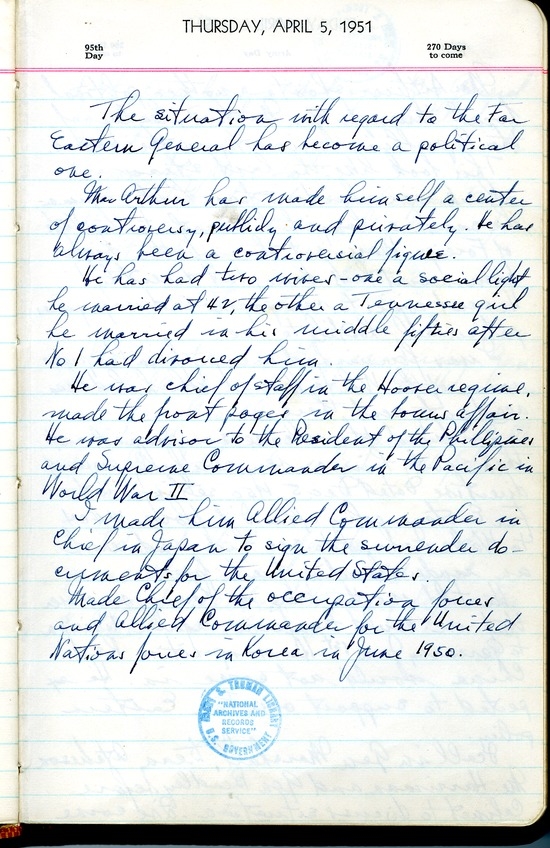 THURSDAY, APRIL 5, 1951
95th
Day
270 Days
to come
The situation with regard to the Far
Eastern General has become a political
one.
MacArthur has made himself a center
of controversy, publicly and privately. He has
always been a controversial figure.
He has had two wives - one a social light
he married at 42, the other a Tennessee girl
he married in his middle fifties after
No 1 had divorced him.
He was chief of staff in the Hoover regime,
made the front pages in the bonus affair.
He was advisor to the President of the Philippines
and Supreme Commander in the Pacific in
World War II
I made him Allied Commander in
Chief in Japan to sign the surrender do-
cuments for the United States.
Made Chief of the occupation forces
and Allied Commander for the United
Nations forces in Korea in June 1950.
HARRY S. TRUMAN LIBRARY
"NATIONAL
ARCHIVES AND
RECORDS
SERVICE"
U.S. GOVERNMENT